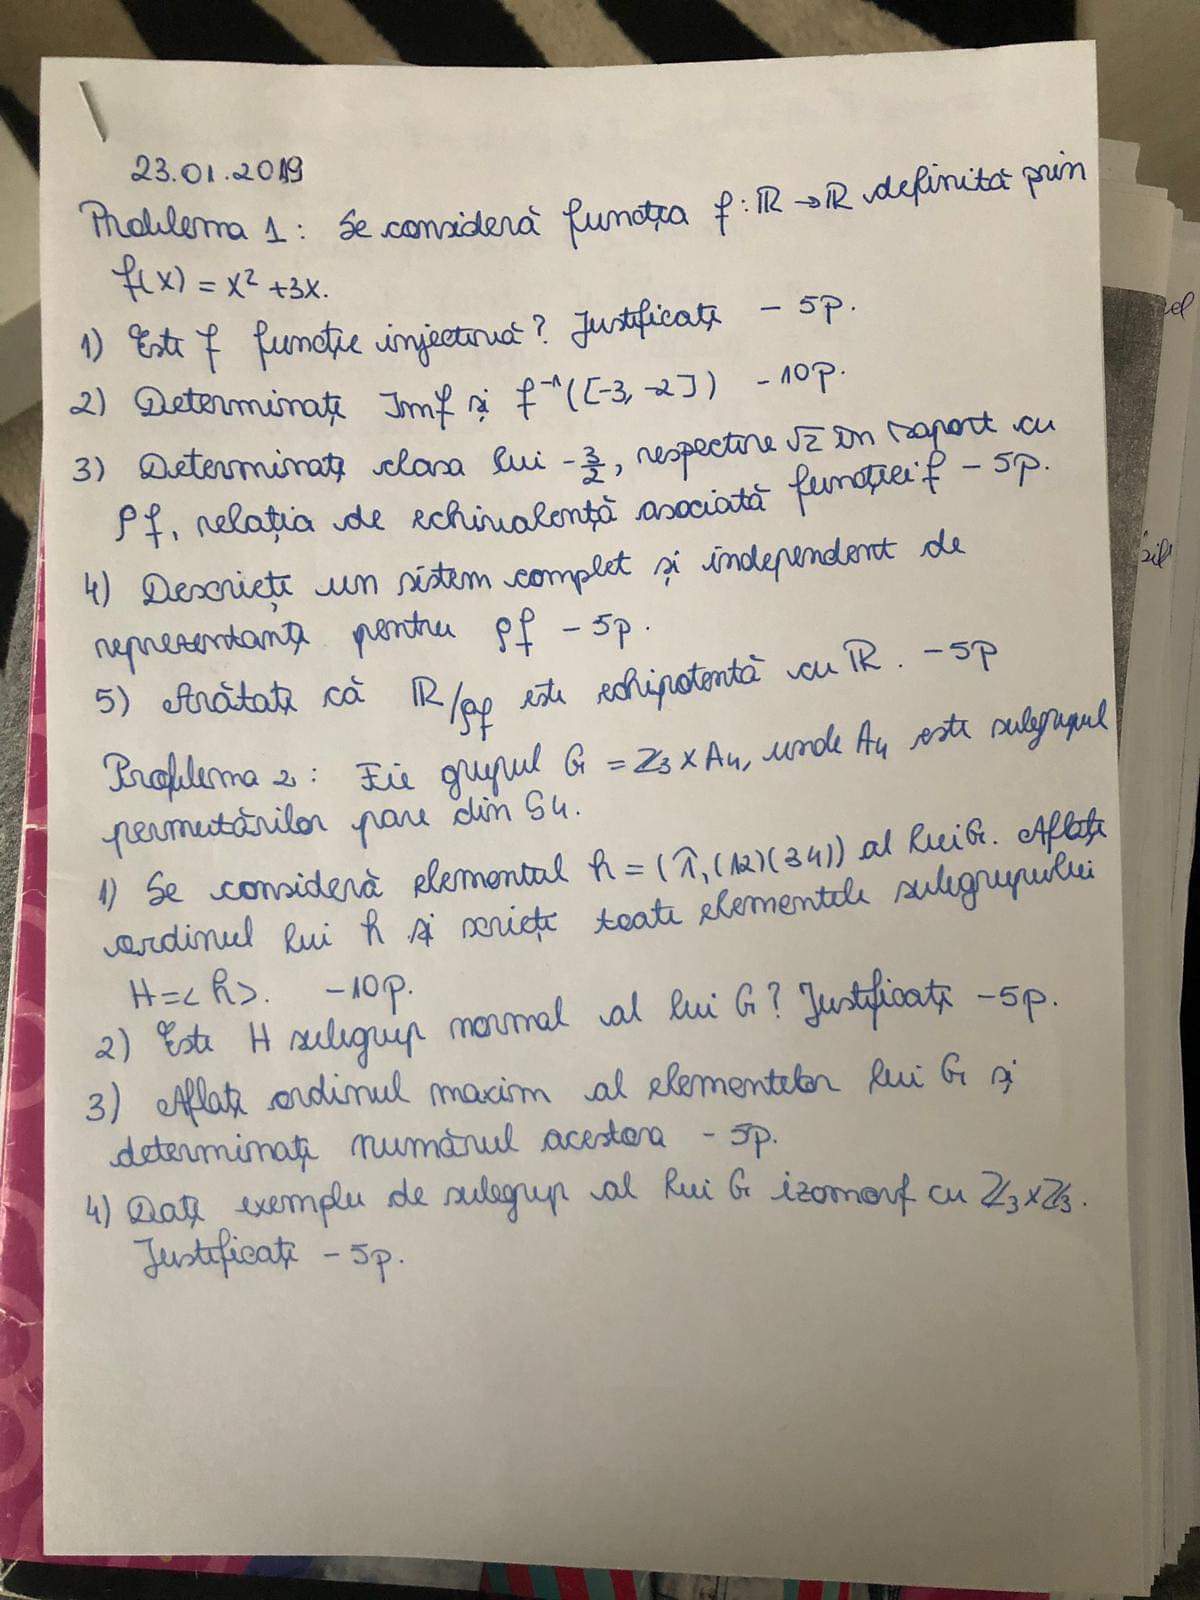 23.01.2019
Problema 1: Se consideră funcția f: ℝ→ℝ definită prin
f(x) = x² + 3x.
1) Este f funcție injectivă? Justificați – 5p.
2) Determinați Imf și f⁻¹([-3, -2]) – 10p.
3) Determinați clasa lui -3/2, respectiv √2 în raport cu
ρf, relația de echivalență asociată funcției f – 5p.
4) Descrieți un sistem complet și independent de
reprezentanți pentru ρf – 5p.
5) Arătați că ℝ/ρf este echipotentă cu ℝ. – 5p
Problema 2: Fie grupul G = ℤ₃ × A₄, unde A₄ este subgrupul
permutărilor pare din S₄.
1) Se consideră elementul h = (1̂, (12)(34)) al lui G. Aflați
ordinul lui h și scrieți toate elementele subgrupului
H = <h>. – 10p.
2) Este H subgrup normal al lui G? Justificați – 5p.
3) Aflați ordinul maxim al elementelor lui G și
determinați numărul acestora – 5p.
4) Dați exemplu de subgrup al lui G izomorf cu ℤ₃ × ℤ₃.
Justificați – 5p.